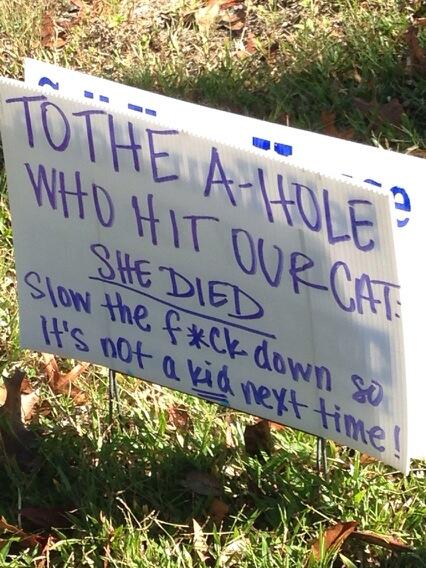 TO THE A-HOLE
WHO HIT OUR CAT:
SHE DIED
Slow the f*ck down so
It's not a kid next time!